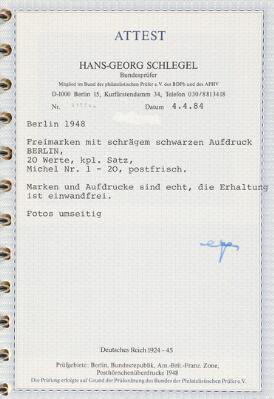 ATTEST
HANS-GEORG SCHLEGEL
Bundesprüfer
Mitglied im Bund der philatelistischen Prüfer e.V. des BDPh und des APHV
D-1000 Berlin 15, Kurfürstendamm 34, Telefon 030/8813418
Nr. Datum 4.4.84
Berlin 1948
Freimarken mit schrägem schwarzen Aufdruck
BERLIN,
20 Werte, kpl. Satz,
Michel Nr. 1 - 20, postfrisch.
Marken und Aufdrucke sind echt, die Erhaltung
ist einwandfrei.
Fotos umseitig
Deutsches Reich 1924-45
Prüfgebiete: Berlin, Bundesrepublik, Am.-Brit.-Franz. Zone,
Posthörschenüberdrucke 1948
Die Prüfung erfolgte auf Grund der Prüfordnung des Bundes der Philatelistischen Prüfer e.V.